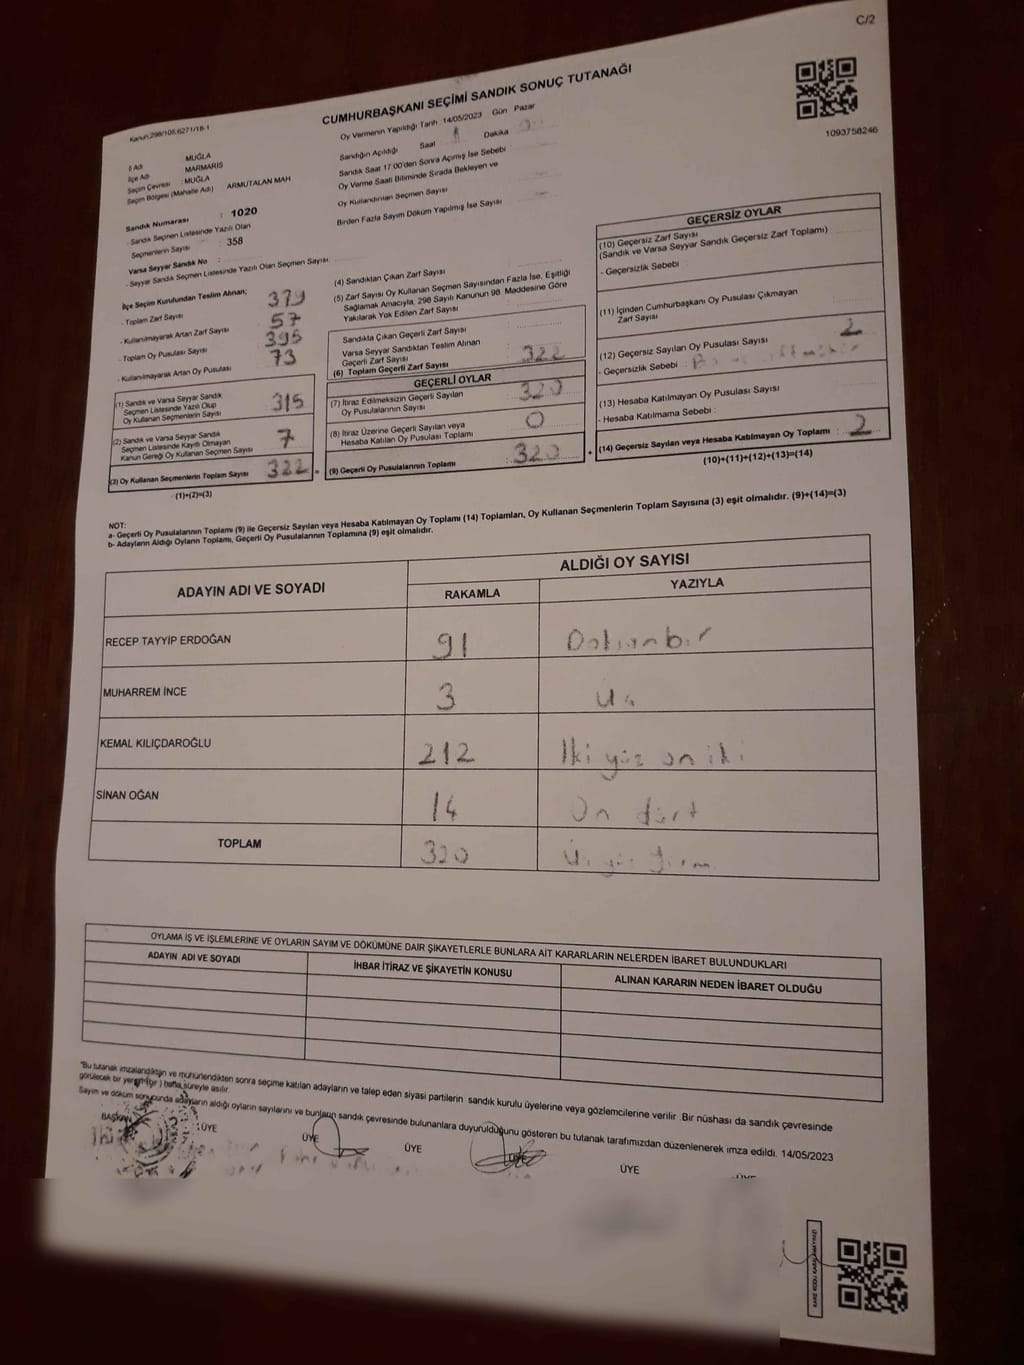 C/2
Kanun:298/105;6271/18-1
CUMHURBAŞKANI SEÇİMİ SANDIK SONUÇ TUTANAĞI
1093758246
İl Adı MUĞLA
İlçe Adı MARMARİS
Seçim Çevresi : MUĞLA
Seçim Bölgesi (Mahalle Adı) ARMUTALAN MAH
Sandık Numarası : 1020
- Sandık Seçmen Listesinde Yazılı Olan
Seçmenlerin Sayısı : 358
Varsa Seyyar Sandık No :
- Seyyar Sandık Seçmen Listesinde Yazılı Olan Seçmen Sayısı
İlçe Seçim Kurulundan Teslim Alınan;
- Toplam Zarf Sayısı 379
- Kullanılmayarak Artan Zarf Sayısı 57
- Toplam Oy Pusulası Sayısı 395
- Kullanılmayarak Artan Oy Pusulası 73
(1) Sandık ve Varsa Seyyar Sandık
Seçmen Listesinde Yazılı Olup
Oy Kullanan Seçmenlerin Sayısı 315
(2) Sandık ve Varsa Seyyar Sandık
Seçmen Listesinde Kayıtlı Olmayan
Kanun Gereği Oy Kullanan Seçmen Sayısı 7
(3) Oy Kullanan Seçmenlerin Toplam Sayısı 322 =
(1)+(2)=(3)
Oy Vermenin Yapıldığı Tarih 14/05/2023 Gün Pazar
Sandığın Açıldığı Saat Dakika
Sandık Saat 17:00'den Sonra Açımış İse Sebebi
Oy Verme Saati Bitiminde Sırada Bekleyen ve
Oy Kullandırılan Seçmen Sayısı
Birden Fazla Sayım Döküm Yapılmış İse Sayısı
(4) Sandıktan Çıkan Zarf Sayısı
(5) Zarf Sayısı Oy Kullanan Seçmen Sayısından Fazla İse, Eşitliği
Sağlamak Amacıyla, 298 Sayılı Kanunun 98. Maddesine Göre
Yakılarak Yok Edilen Zarf Sayısı
Sandıkta Çıkan Geçerli Zarf Sayısı
Varsa Seyyar Sandıktan Teslim Alınan
Geçerli Zarf Sayısı
(6) Toplam Geçerli Zarf Sayısı 322
GEÇERLİ OYLAR
(7) İtiraz Edilmeksizin Geçerli Sayılan
Oy Pusulalarının Sayısı 320
(8) İtiraz Üzerine Geçerli Sayılan veya
Hesaba Katılan Oy Pusulası Toplamı 0
(9) Geçerli Oy Pusulalarının Toplamı 320 +
GEÇERSİZ OYLAR
(10) Geçersiz Zarf Sayısı
(Sandık ve Varsa Seyyar Sandık Geçersiz Zarf Toplamı)
- Geçersizlik Sebebi :
(11) İçinden Cumhurbaşkanı Oy Pusulası Çıkmayan
Zarf Sayısı
(12) Geçersiz Sayılan Oy Pusulası Sayısı 2
- Geçersizlik Sebebi :
(13) Hesaba Katılmayan Oy Pusulası Sayısı
- Hesaba Katılmama Sebebi :
(14) Geçersiz Sayılan veya Hesaba Katılmayan Oy Toplamı : 2
(10)+(11)+(12)+(13)=(14)
NOT:
a- Geçerli Oy Pusulalarının Toplamı (9) ile Geçersiz Sayılan veya Hesaba Katılmayan Oy Toplamı (14) Toplamları, Oy Kullanan Seçmenlerin Toplam Sayısına (3) eşit olmalıdır. (9)+(14)=(3)
b- Adayların Aldığı Oyların Toplamı, Geçerli Oy Pusulalarının Toplamına (9) eşit olmalıdır.
ADAYIN ADI VE SOYADI ALDIĞI OY SAYISI
RAKAMLA YAZIYLA
RECEP TAYYİP ERDOĞAN 91 Doksanbir
MUHARREM İNCE 3 Üç
KEMAL KILIÇDAROĞLU 212 İki yüz on iki
SİNAN OĞAN 14 On dört
TOPLAM 320
OYLAMA İŞ VE İŞLEMLERİNE VE OYLARIN SAYIM VE DÖKÜMÜNE DAİR ŞİKAYETLERLE BUNLARA AİT KARARLARIN NELERDEN İBARET BULUNDUKLARI
ADAYIN ADI VE SOYADI İHBAR İTİRAZ VE ŞİKAYETİN KONUSU ALINAN KARARIN NEDEN İBARET OLDUĞU
*Bu tutanak imzalandıktan ve mühürlendikten sonra seçime katılan adayların ve talep eden siyasi partilerin sandık kurulu üyelerine veya gözlemcilerine verilir. Bir nüshası da sandık çevresinde
görülecek bir yere (bir) hafta süreyle asılır.
Sayım ve döküm sonucunda adayların aldığı oyların sayılarını ve bunların sandık çevresinde bulunanlara duyurulduğunu gösteren bu tutanak tarafımızdan düzenlenerek imza edildi. 14/05/2023
BAŞKAN ÜYE ÜYE ÜYE ÜYE ÜYE